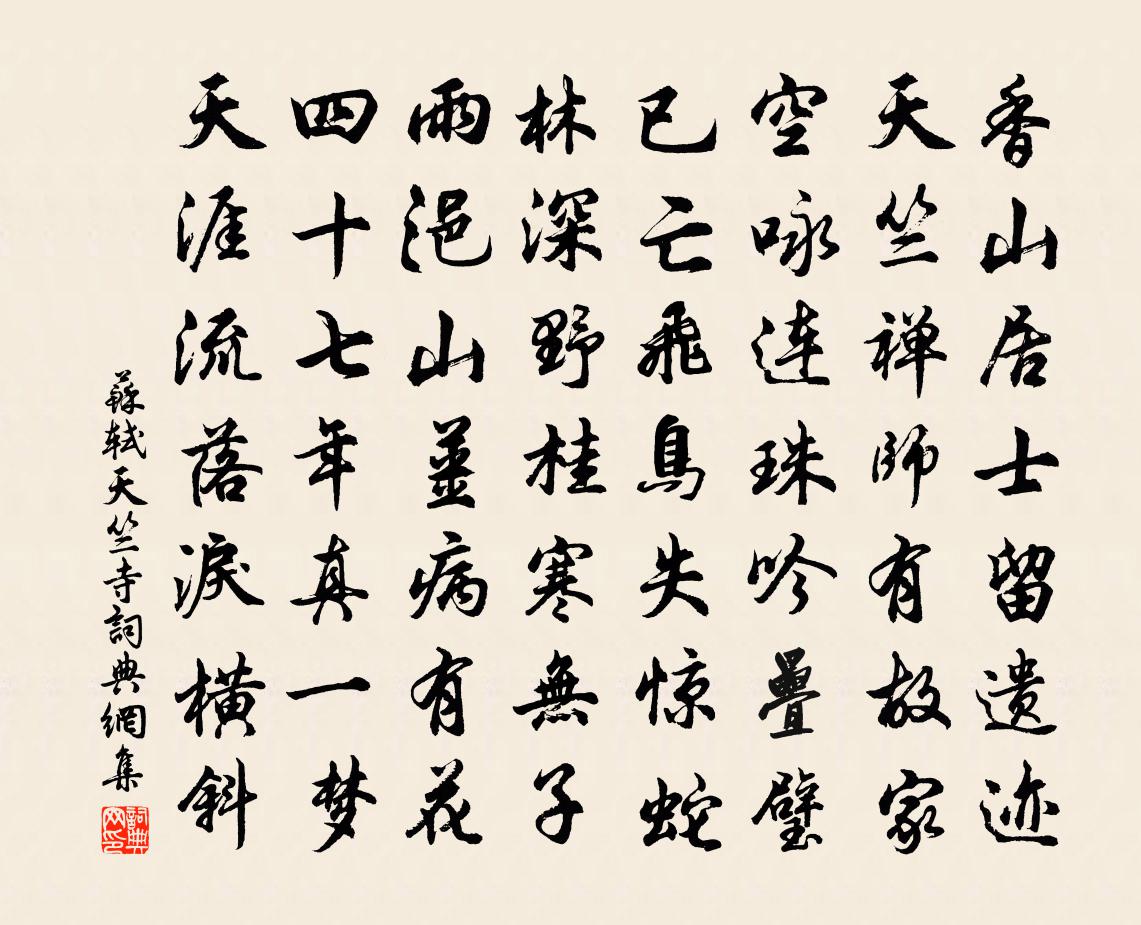 香山居士留遗迹
天竺禅師有故家
空咏连珠吟疊璧
已亡飛鳥失惊蛇
林深野桂寒無子
雨浥山薑病有花
四十七年真一梦
天涯流落淚横斜
蘇軾天竺寺詞典網集
詞典网印